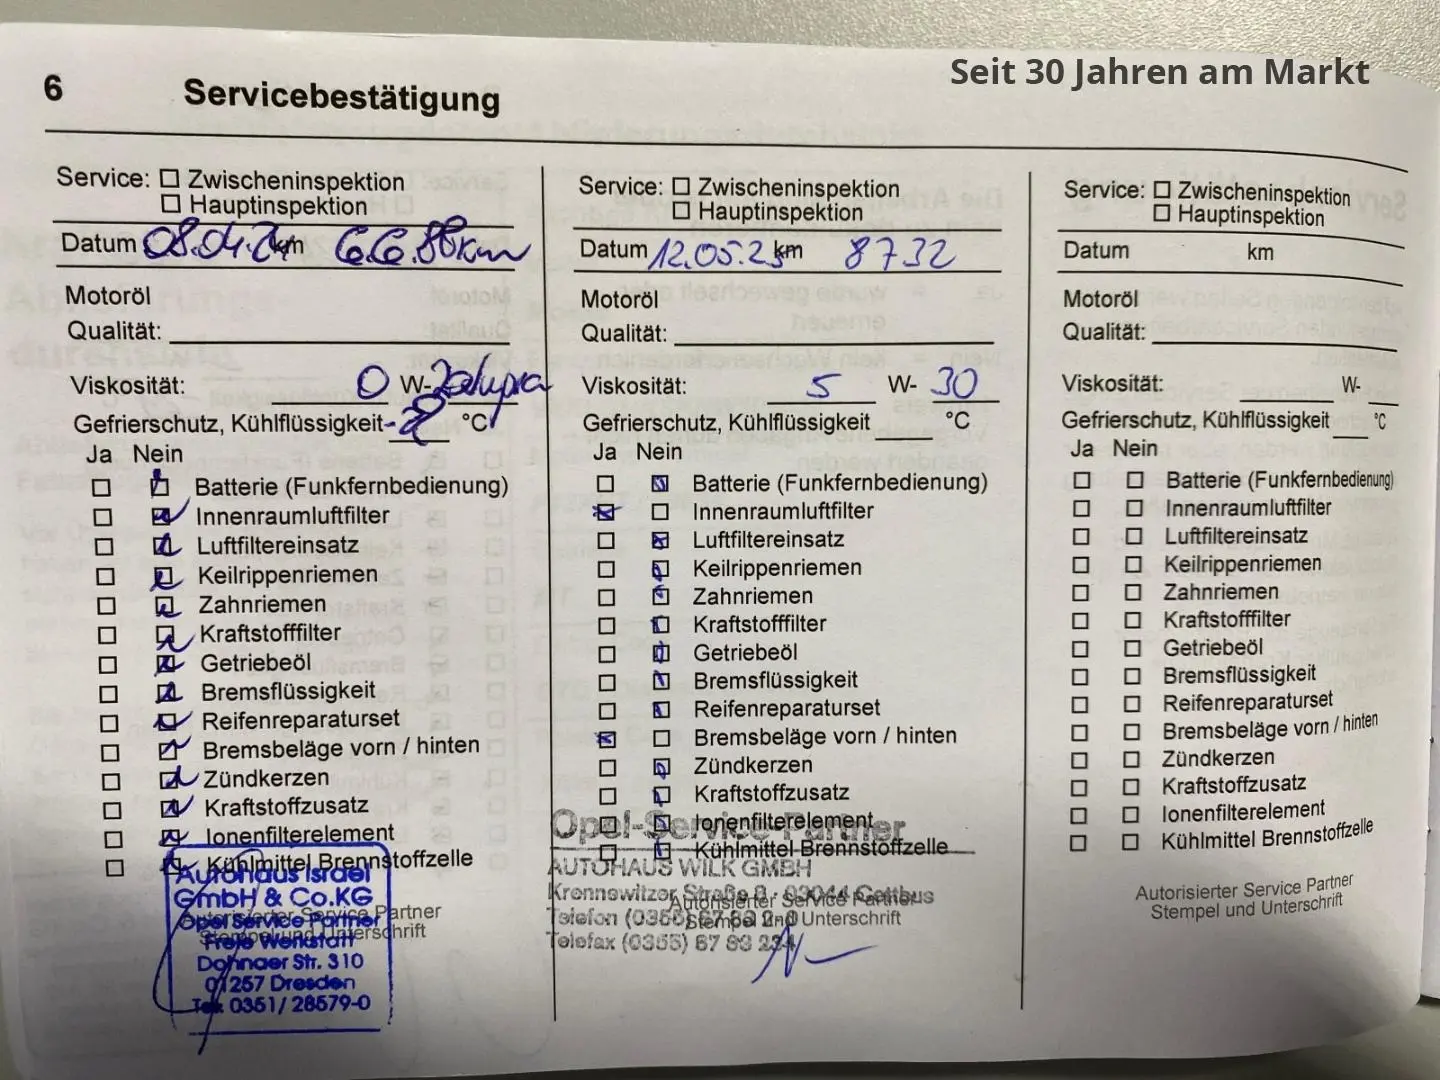 Seit 30 Jahren am Markt
6 Servicebestätigung
Service: Zwischeninspektion
Hauptinspektion
Datum 08.04.24 km
Motoröl
Qualität:
Viskosität: 0 W-
Gefrierschutz, Kühlflüssigkeit °C
Ja Nein
Batterie (Funkfernbedienung)
Innenraumluftfilter
Luftfiltereinsatz
Keilrippenriemen
Zahnriemen
Kraftstofffilter
Getriebeöl
Bremsflüssigkeit
Reifenreparaturset
Bremsbeläge vorn / hinten
Zündkerzen
Kraftstoffzusatz
Ionenfilterelement
Kühlmittel Brennstoffzelle
Autorisierter Service Partner
Stempel und Unterschrift
Autohaus Israel
GmbH & Co.KG
Opel Service Partner
Freie Werkstatt
Dohnaer Str. 310
01257 Dresden
Tel. 0351/ 28579-0
Service: Zwischeninspektion
Hauptinspektion
Datum 12.05.23 km 8732
Motoröl
Qualität:
Viskosität: 5 W- 30
Gefrierschutz, Kühlflüssigkeit °C
Ja Nein
Batterie (Funkfernbedienung)
Innenraumluftfilter
Luftfiltereinsatz
Keilrippenriemen
Zahnriemen
Kraftstofffilter
Getriebeöl
Bremsflüssigkeit
Reifenreparaturset
Bremsbeläge vorn / hinten
Zündkerzen
Kraftstoffzusatz
Ionenfilterelement
Kühlmittel Brennstoffzelle
Autorisierter Service Partner
Stempel und Unterschrift
Opel-Service-Partner
AUTOHAUS WILK GMBH
Straße 8 · 03044 Cottbus
Telefon (0355)
Telefax (0355) 87 83 234
Service: Zwischeninspektion
Hauptinspektion
Datum km
Motoröl
Qualität:
Viskosität: W-
Gefrierschutz, Kühlflüssigkeit °C
Ja Nein
Batterie (Funkfernbedienung)
Innenraumluftfilter
Luftfiltereinsatz
Keilrippenriemen
Zahnriemen
Kraftstofffilter
Getriebeöl
Bremsflüssigkeit
Reifenreparaturset
Bremsbeläge vorn / hinten
Zündkerzen
Kraftstoffzusatz
Ionenfilterelement
Kühlmittel Brennstoffzelle
Autorisierter Service Partner
Stempel und Unterschrift